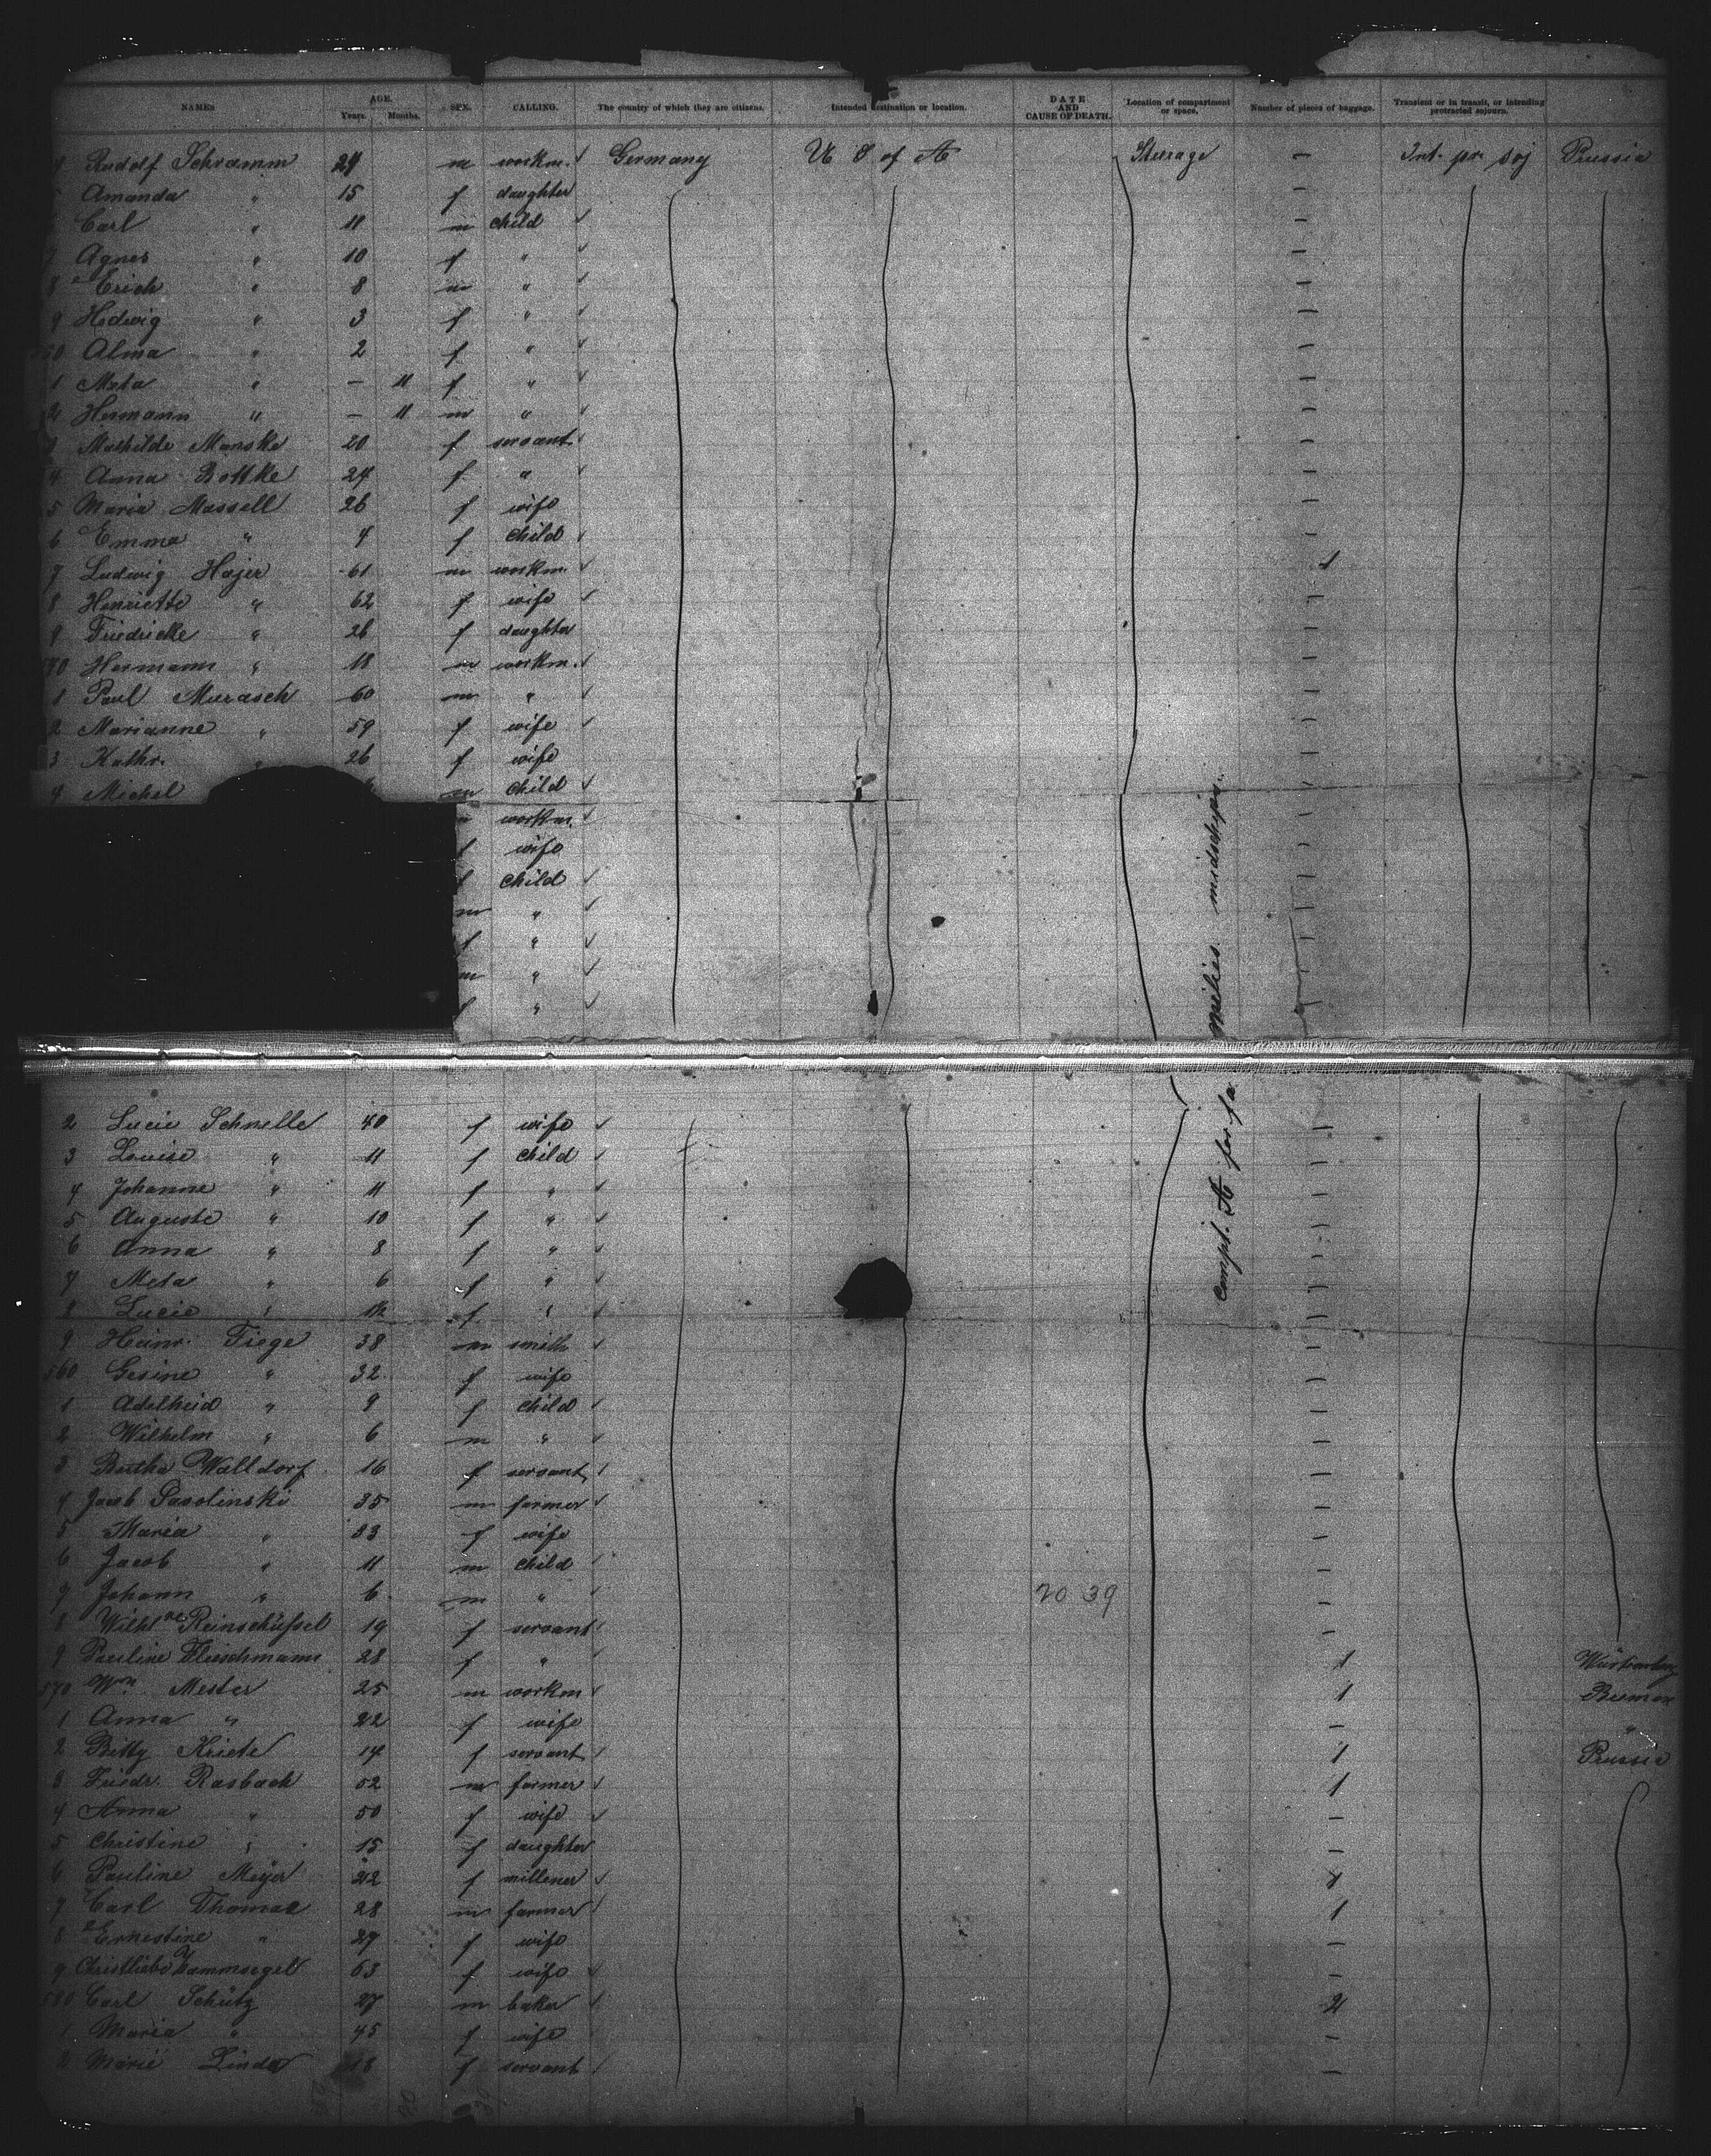 NAMES AGE. Years. Months. SEX. CALLING. The country of which they are citizens. Intended destination or location. DATE AND CAUSE OF DEATH. Location of compartment or space. Number of pieces of baggage. Transient or in transit, or intending protracted sojourn.
Rudolf Schramm 24 m workm. Germany U S of A Steerage — Int. pr. soj Prussia
Amanda " 15 f daughter —
Carl " 11 m child —
7 Agnes " 10 f " —
8 Erich " 8 m " —
9 Hedwig " 3 f " —
Alma " 2 f " —
1 Meta " — 11 f " —
2 Hermann " — 11 m " —
3 Mathilde Manske 20 f servant —
4 Anna Bottke 24 f " —
5 Maria Massell 26 f wife —
6 Emma " 4 f child —
7 Ludwig Hajer 61 m workm. 1
8 Henriette " 62 f wife —
9 Friedricke " 26 f daughter —
Hermann " 18 m workm. —
1 Paul Murasch 60 m " —
2 Marianne " 59 f wife —
3 Kathr. " 26 f wife —
4 Michel m child —
workm. —
f wife —
f child —
m " —
f " —
m " —
f " —
compt. A for fa milies midships.
2 Lucie Schnelle 40 f wife —
3 Louise " 11 f child —
4 Johanne " 11 f " —
5 Auguste " 10 f " —
6 Anna " 8 f " —
7 Meta " 6 f " —
8 Lucie " f " —
9 Heinr. Fiege 38 m smith —
560 Gesine " 32 f wife —
1 Adelheid " 9 f child —
2 Wilhelm " 6 m " —
3 Bertha Walldorf 16 f servant —
4 Jacob Sasolinski 35 m farmer —
5 Maria " 33 f wife —
6 Jacob " 11 m child —
7 Johann " 6 m " 20 39 —
8 Wilhlne Reinschüssel 19 f servant —
9 Pauline Fleischmann 28 f " 1 Würtemberg
570 Wm Mester 25 m workm 1 Bremen
1 Anna " 22 f wife — "
2 Betty Kriete 14 f servant 1 Prussia
3 Friedr. Rasbach 52 m farmer 1
4 Anna " 50 f wife —
5 Christine " 15 f daughter —
6 Pauline Meyer 22 f millener 1
7 Carl Thomae 28 m farmer 1
8 Ernestine " 27 f wife —
9 Christliebe 63 f wife —
580 Carl Schütz 27 m baker 2
1 Maria " 45 f wife —
2 Marie Linde 18 f servant —